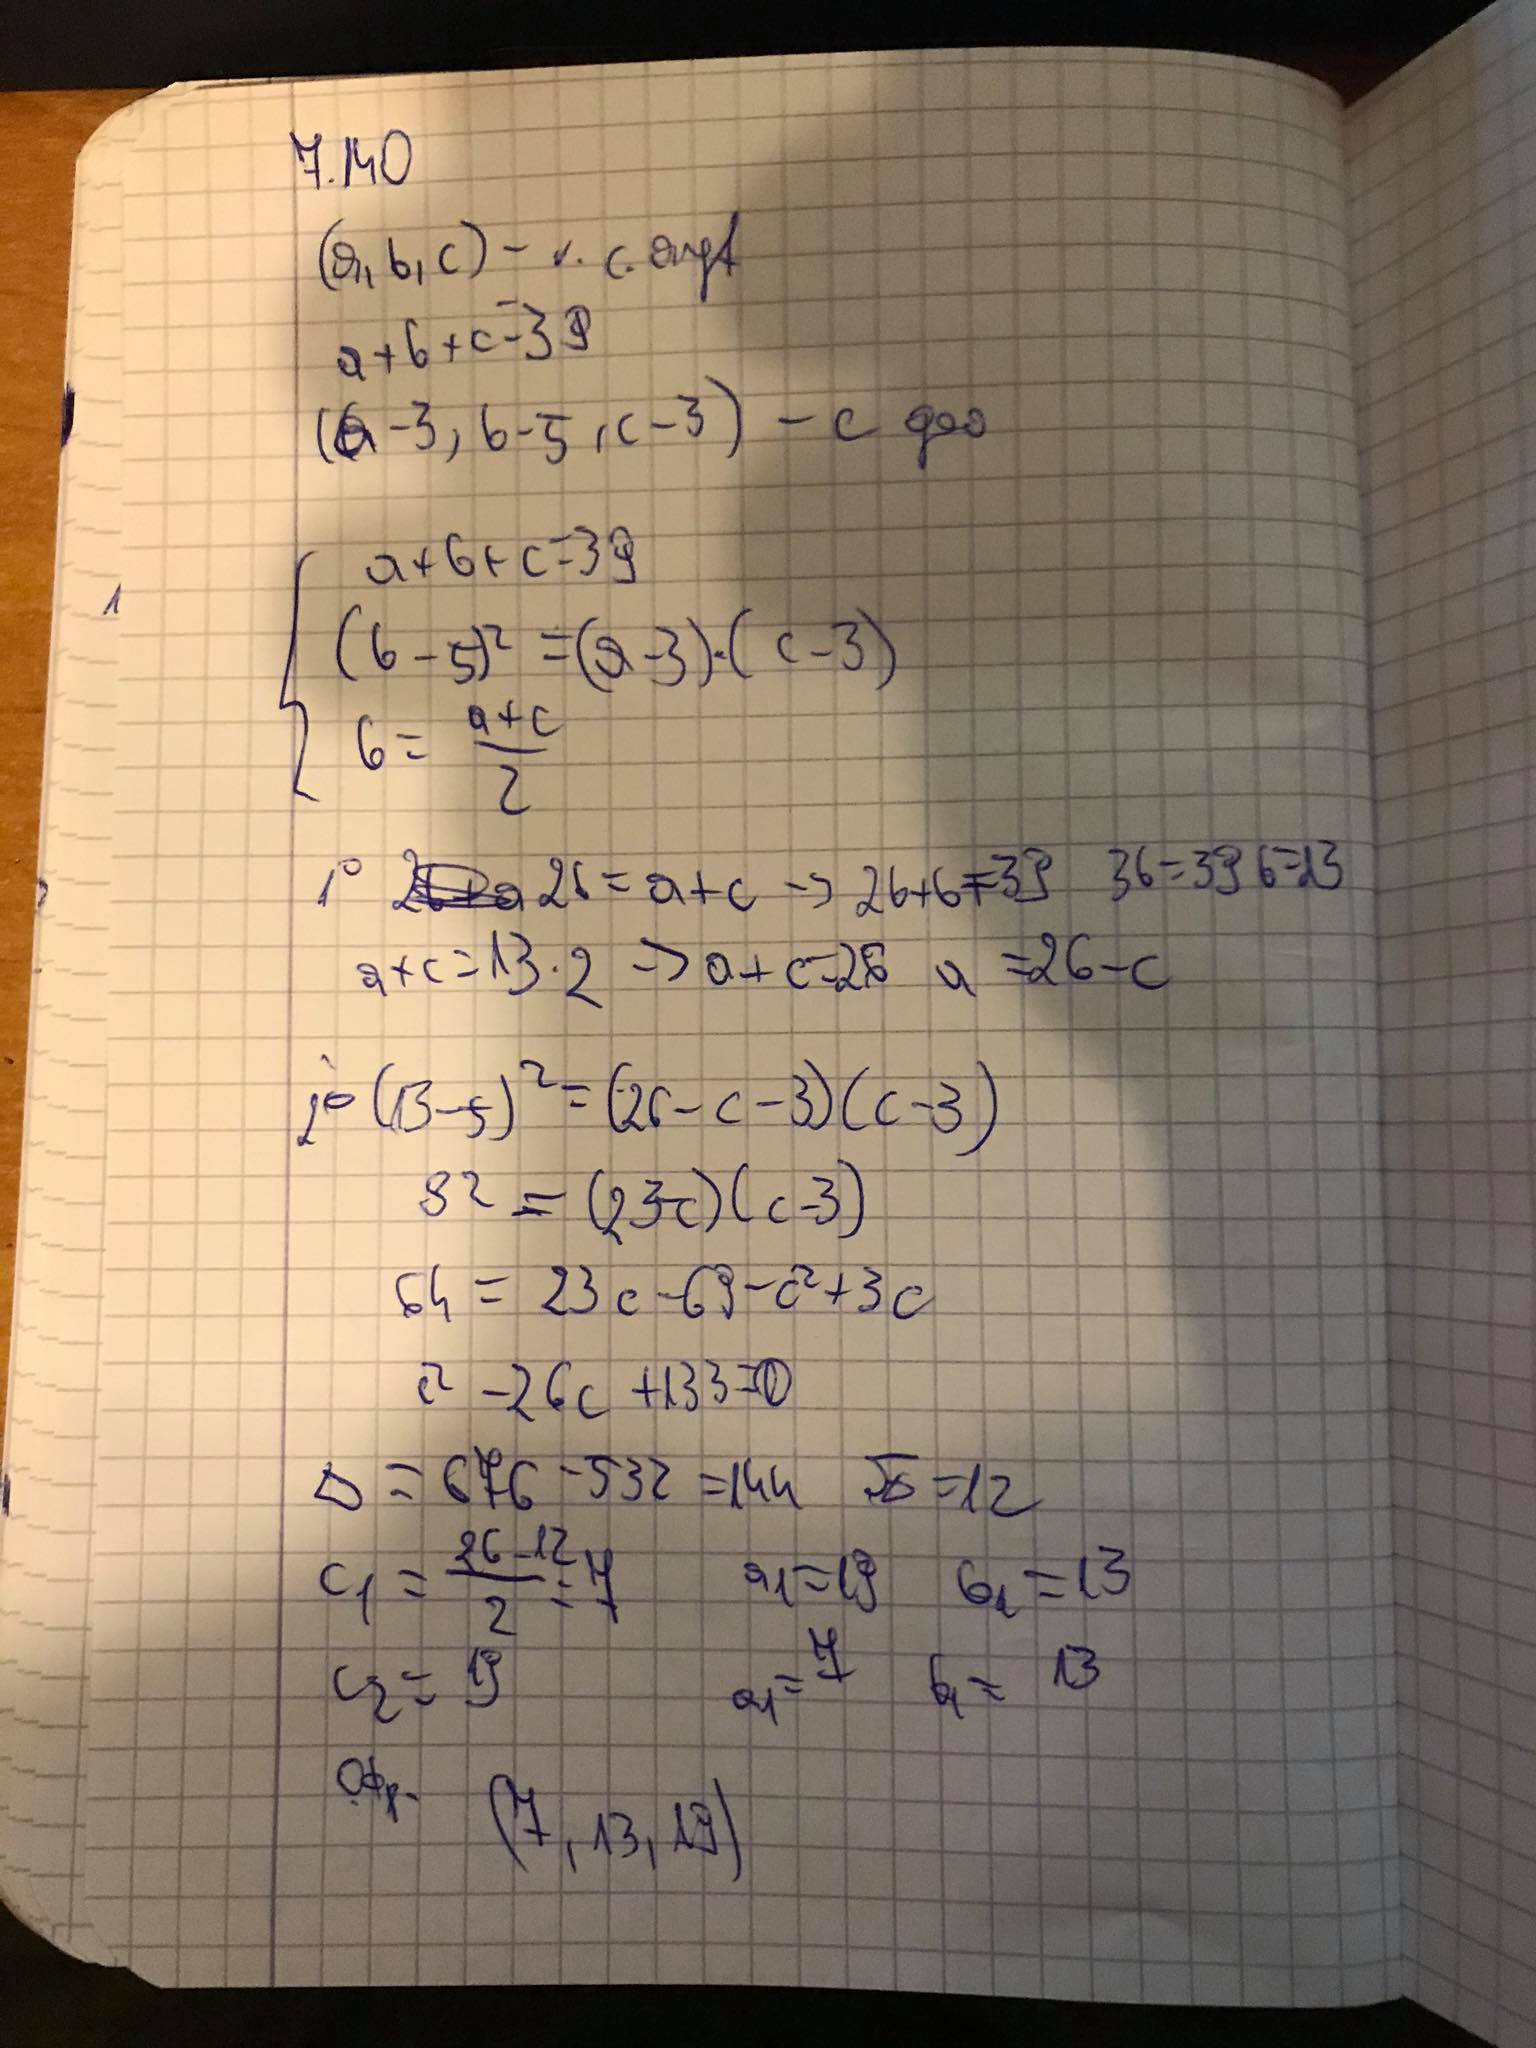 7.140
(a, b, c) - r. c. aryt
a+b+c=39
(a-3, b-5, c-3) - c geo
a+b+c=39
(b-5)² = (a-3)·(c-3)
b = \frac{a+c}{2}
1° 2b = a+c -> 2b+b=39 3b=39 b=13
a+c=13·2 -> a+c=26 a=26-c
2° (13-5)² = (26-c-3)(c-3)
8² = (23-c)(c-3)
64 = 23c-69-c²+3c
c²-26c+133=0
Δ = 676-532=144 √Δ=12
c₁ = \frac{26-12}{2} = 7 a₁=19 b₁=13
c₂ = 19 a₁=7 b₁= 13
(7, 13, 19)